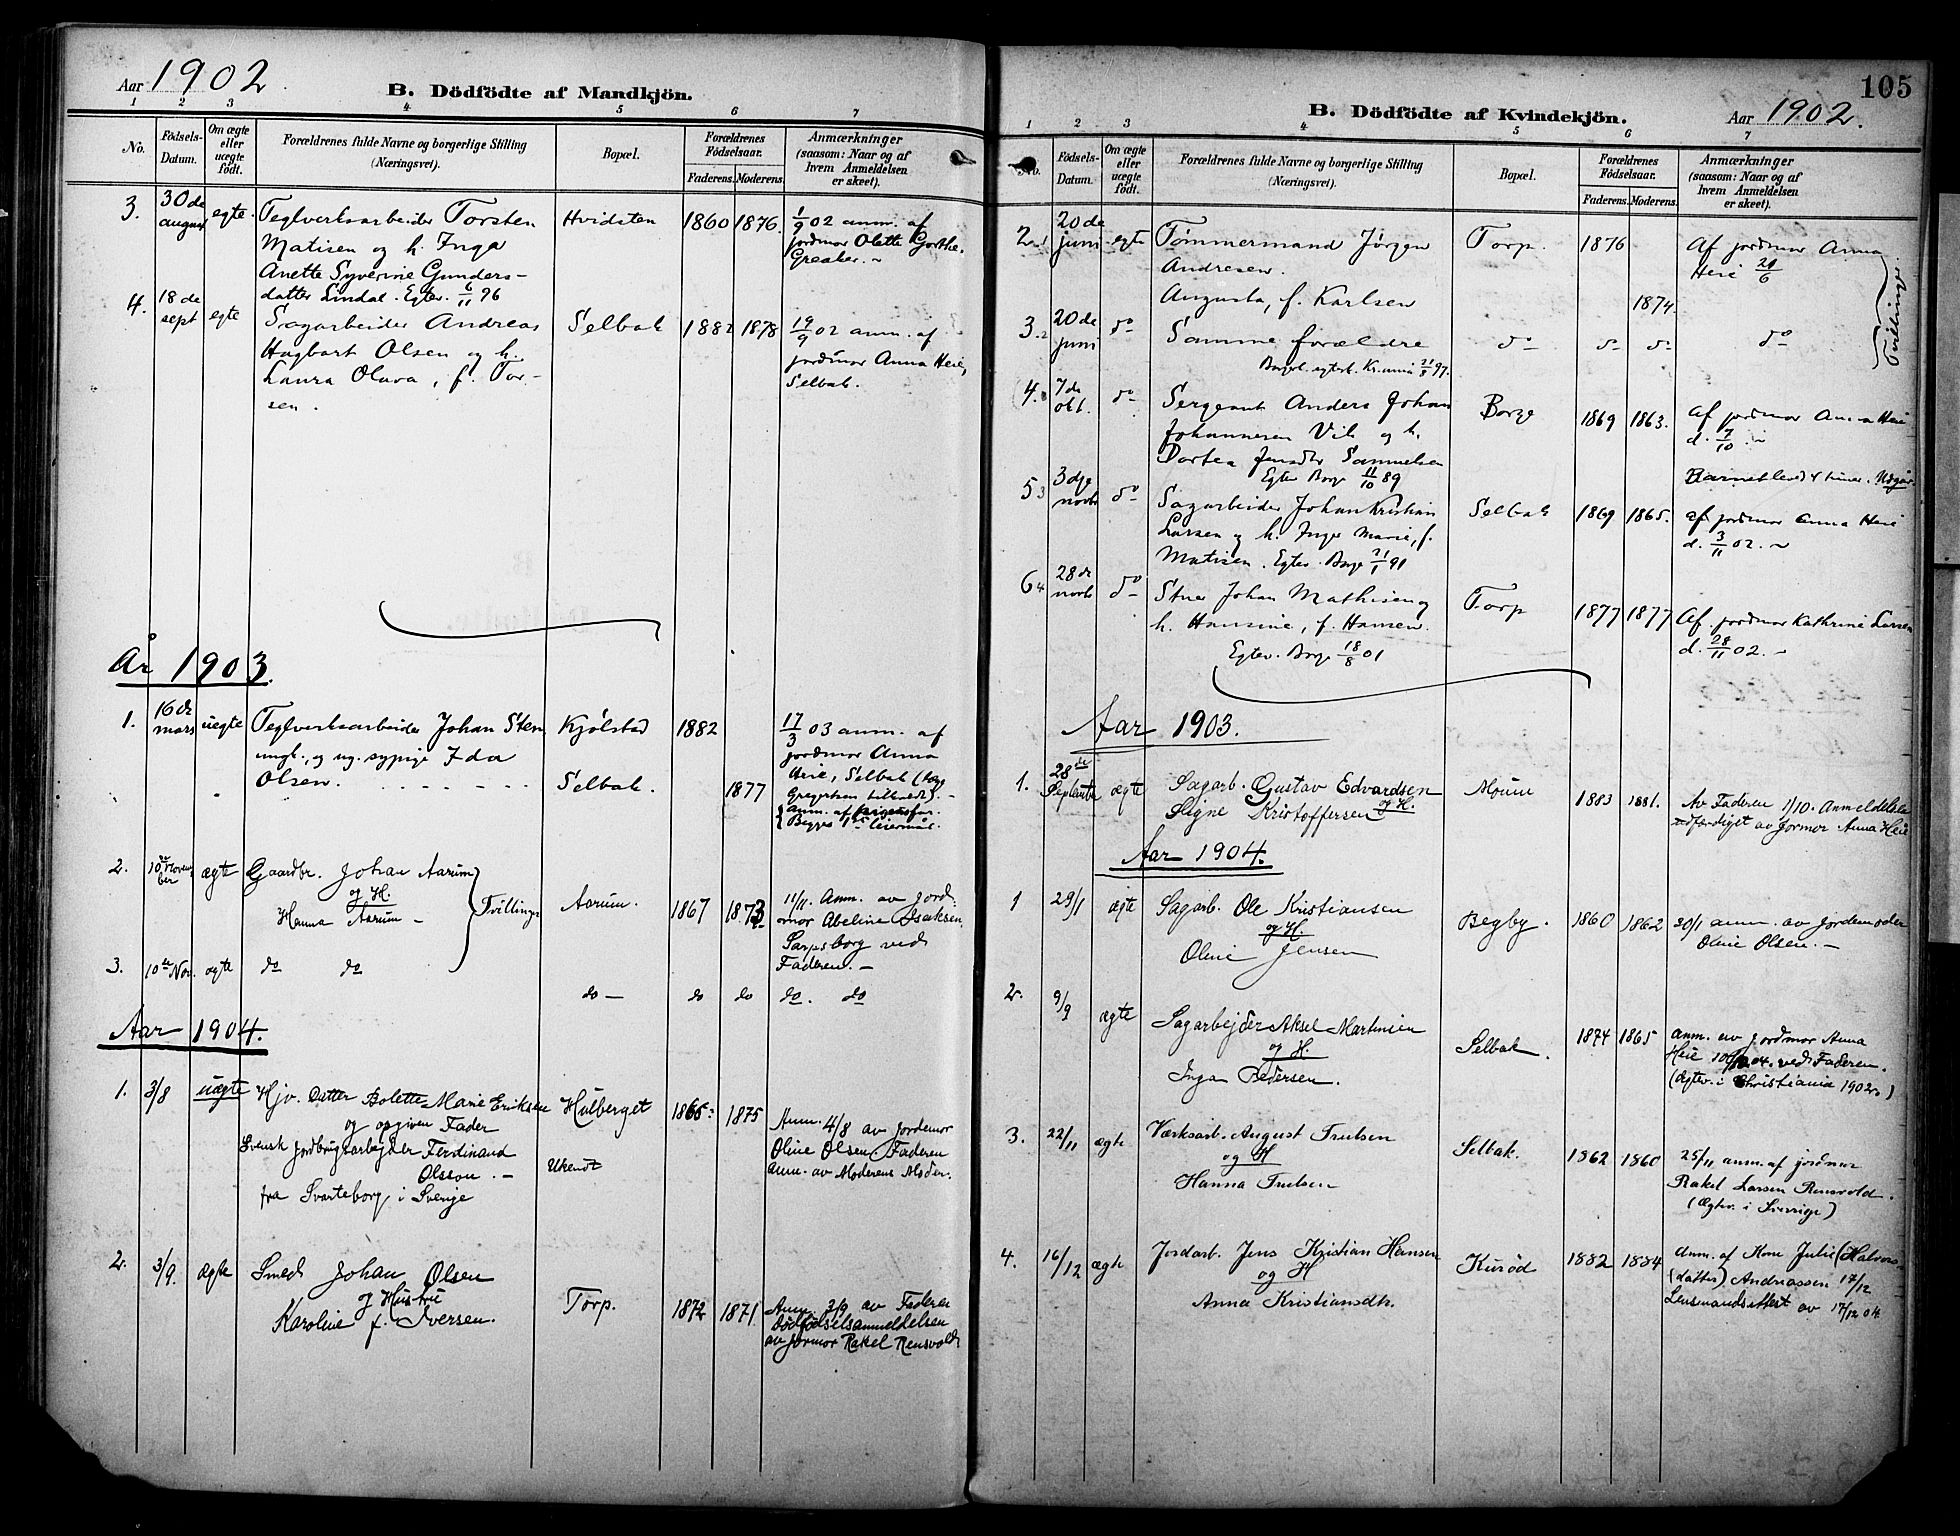 Aar 1902
B. Dödfödte af Mandkjön.
1 2 3 4 5 6 7
No. Födsels-Datum. Om ægte eller uægte födt. Forældrenes fulde Navne og borgerlige Stilling (Næringsvei). Bopæl. Forældrenes Födselsaar. Faderens. Moderens. Anmærkninger (saasom: Naar og af hvem Anmeldelsen er skeet).
3. 30 de august egte Teglverksarbeider Torsten Hvidsten 1860 1876. 1/9 02 anm. af
Matisen og h. Inga jordmor Olette Grethe
Anette Syverine Gunders- Greaker. ~
datter Lindal. Egtev. 6/11 96
4. 18 de sept egte Sagarbeider Andreas Selbak 1882 1878 19/9 02 anm. af
Hagbart Olsen og h. jordmor Anna Heie,
Laura Olava, f. Tor- Selbak.
sen.
År 1903.
1. 16 de mars uegte Teglverksarbeider Johan Sten Kjölstad 1882 17/3 03 anm. af
ungk., og ug. sypige Ida jordmor Anna
Olsen. Selbak. 1877 Heie, Selbak
Begges 1ste leiermål.
2. 10de November ægte Gaardbr. Johan Aarum Tvillinger Aarum. 1867 1873 11/11. Anm. av Jord-
og H. mor Abeline Isaksen
Hanna Aarum – Sarpsborg ved
3. 10de Nov. ægte do do Faderen. –
do – do do do. do
Aar 1904.
1. 3/8 uægte Hjv. Datter Bolette Marie Eriksen Hulberget 1865 1875 Anm. 4/8 av Jordemor
og opgiven Fader Oline Olsen. Faderen
Svensk jordbrugsarbejder Ferdinand anm. av Moderens Moder.
Olsson. – Ukendt
fra Svarteborg i Sverige
2. 3/9. ægte Smed Johan Olsen Torp. 1872 1871 Anm. 3/9 av Faderen
og Hustru Dødfødselsanmeldelsen
Karoline f. Iversen. av Jormor Rakel Rensvold
105
B. Dödfödte af Kvindekjön.
Aar 1902.
1 2 3 4 5 6 7
No. Födsels-Datum. Om ægte eller uægte födt. Forældrenes fulde Navne og borgerlige Stilling (Næringsvei). Bopæl. Forældrenes Födselsaar. Faderens. Moderens. Anmærkninger (saasom: Naar og af hvem Anmeldelsen er skeet).
2. 20 de juni egte Tømmermand Jørgen Torp. 1876 Af jordmor Anna
Andresen. Heie 20/6
Augusta, f. Karlsen 1874. Tvillinger.
3. 20 de juni do Samme forældre do do do do
Borgerl. egtev. Kr.ania 21/8 97.
4. 7 de okt. do Sergeant Anders Johan Borge 1869 1863. Af jordmor Anna Heie
Johannesen Vik og h. d. 7/10 ~
Dortea Jensdtr Samuelsen
Egtev Borge 11/10 89
Barnet levede 4 timer. Udgår.
5 3 3dje novbr do Sagarbeider Johan Kristian Selbak 1869 1865. af jordmor Anna Heie
Larsen og h. Inga Marie, f. d. 3/11 02. ~
Matisen. Egtev. Borge 21/1 91
6 4 28 de novbr do Stuer Johan Mathisen og Torp 1877 1877 Af jordmor Kathrine Larsen
h. Hansine, f. Hansen. d. 28/11 02. ~
Egtev. Borge 18/8 01
Aar 1903.
1. 28de September ægte Sagarb. Gustav Edvardsen Moum 1883 1881. Av Faderen 1/10. Anmeldelse
og H.
Signe Kristoffersen udfærdiget av Jormor Anna Heie
Aar 1904.
1 29/1 ægte Sagarb. Ole Kristiansen Begby. 1860 1862 30/1 anm. av Jordemoder
og H. Oline Olsen. –
Oline Jensen
2. 9/9 ægte Sagarbejder Aksel Martinsen Selbak. 1874 1865 anm. av Jordmor Anna
og H. Heie 10/9 04. ved Faderen.
Inga Pedersen. (Ægtev. i Christiania 1902.)
3. 22/11 ægte Værksarb. August Trulsen Selbak. 1862 1860 25/11 anm. af jordmor
og H Rakel Larsen Rensvold.
Hanna Trulsen (Ægtev. i Sverrige)
4. 16/12 ægte Jordarb. Jens Kristian Hansen Kuröd 1882 1884 Anm. af Kone Julie (Halvors-
og H datter) Andreassen 17/12
Anna Kristiansdtr. Lensmandsattest av 17/12 04.